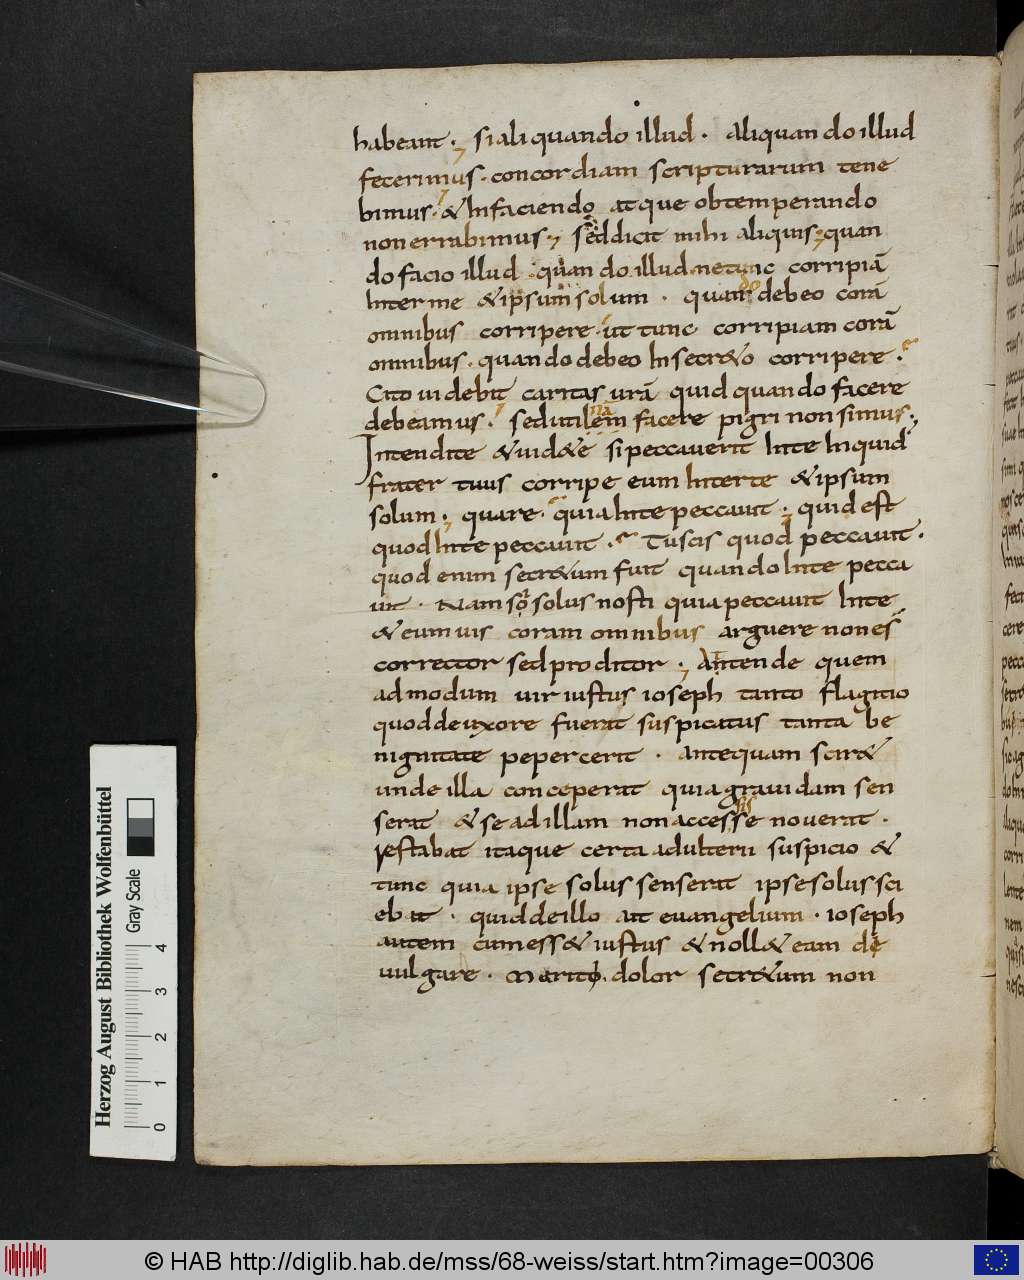 habeant. si aliquando illud. Aliquando illud
fecerimus. concordiam scripturarum tene
bimus. & In faciendo atque obtemperando
non errabimus. sed dicit mihi aliquis quan
do facio illud quando illud ne tunc corripiā
Inter me & ipsum solum. quando debeo corā
omnibus corripere. ut tunc corripiam corā
omnibus. quando debeo In secr&o corripere.
Cito videbit caritas urā quid quando facere
debeamus. sed utinā facere pigri non simus.
Intendite & uid&e si peccauerit Inte Inquid
frater tuus corripe eum Inter te & ipsum
solum. quare. quia Inte peccauit. quid est
quod Inte peccauit. Tu scis quod peccauit.
quod enim secr&um fuit quando Inte pecca
uit. Nam si solus nosti quia peccauit Inte
& eum uis coram omnibus arguere non es
corrector sed proditor. Attende quem
admodum uir iustus ioseph tanto flagitio
quod de uxore fuerat suspicatus tanta be
nignitate pepercerit. Antequam scir&
unde illa conceperat quia grauidam sen
serat & se ad illam non accessisse nouerat.
restabat itaque certa adulterii suspicio &
tunc quia ipse solus senserit ipse solus sci
ebat. quid de illo ait euangelium. ioseph
autem cum ess& iustus & noll& eam de
uulgare. Mariti dolor secr&um non
Herzog August Bibliothek Wolfenbüttel
Gray Scale
0 1 2 3 4
© HAB http://diglib.hab.de/mss/68-weiss/start.htm?image=00306